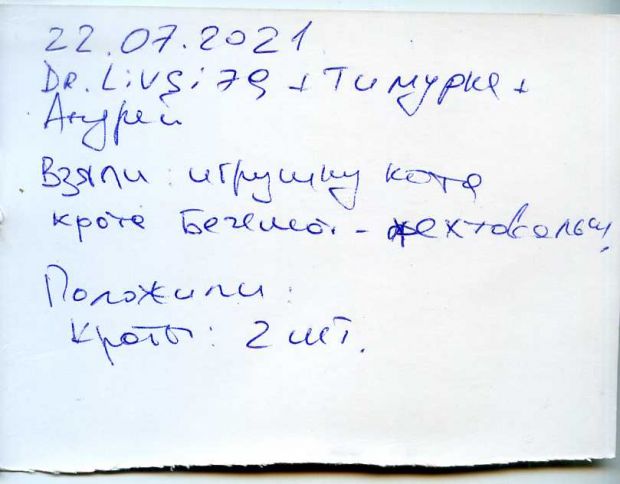 22.07.2021
Dr. Livsi79 + Тимурка +
Андрей
Взяли: игрушку кота
крота Бегемот - фехтовальщ
Положили:
Кроты: 2 шт.